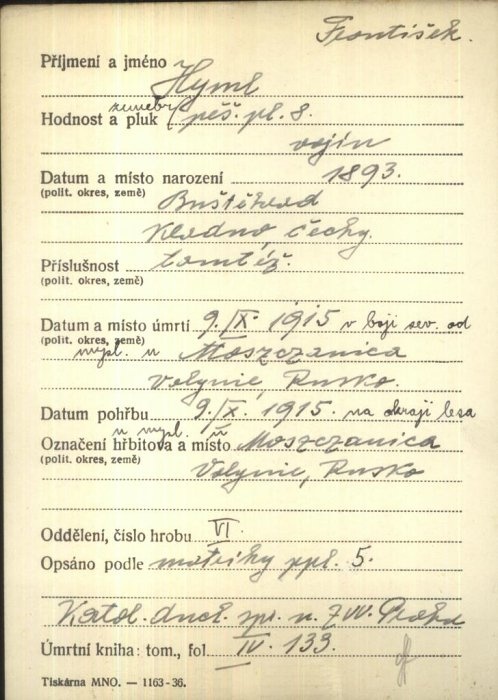 František.
Příjmení a jméno Hyml
zeměbr.
Hodnost a pluk pěš. pl. 8.
vojín
Datum a místo narození 1893.
(polit. okres, země) Buštěhrad
Kladno, Čechy.
Příslušnost tamtéž.
(polit. okres, země)
Datum a místo úmrtí 9./IX. 1915 v boji sev. od
(polit. okres, země) mýsl. u Moszczanica
Volynie, Rusko.
Datum pohřbu 9./IX. 1915. na okraji lesa
u mysl. u
Označení hřbitova a místo Moszczanica
(polit. okres, země) Volynie, Rusko
Oddělení, číslo hrobu VI
Opsáno podle matriky ppl. 5.
Katol. duch. spr. n. ZVV. Praha
Úmrtní kniha: tom., fol. IV. 133.
Tiskárna MNO. — 1163-36.